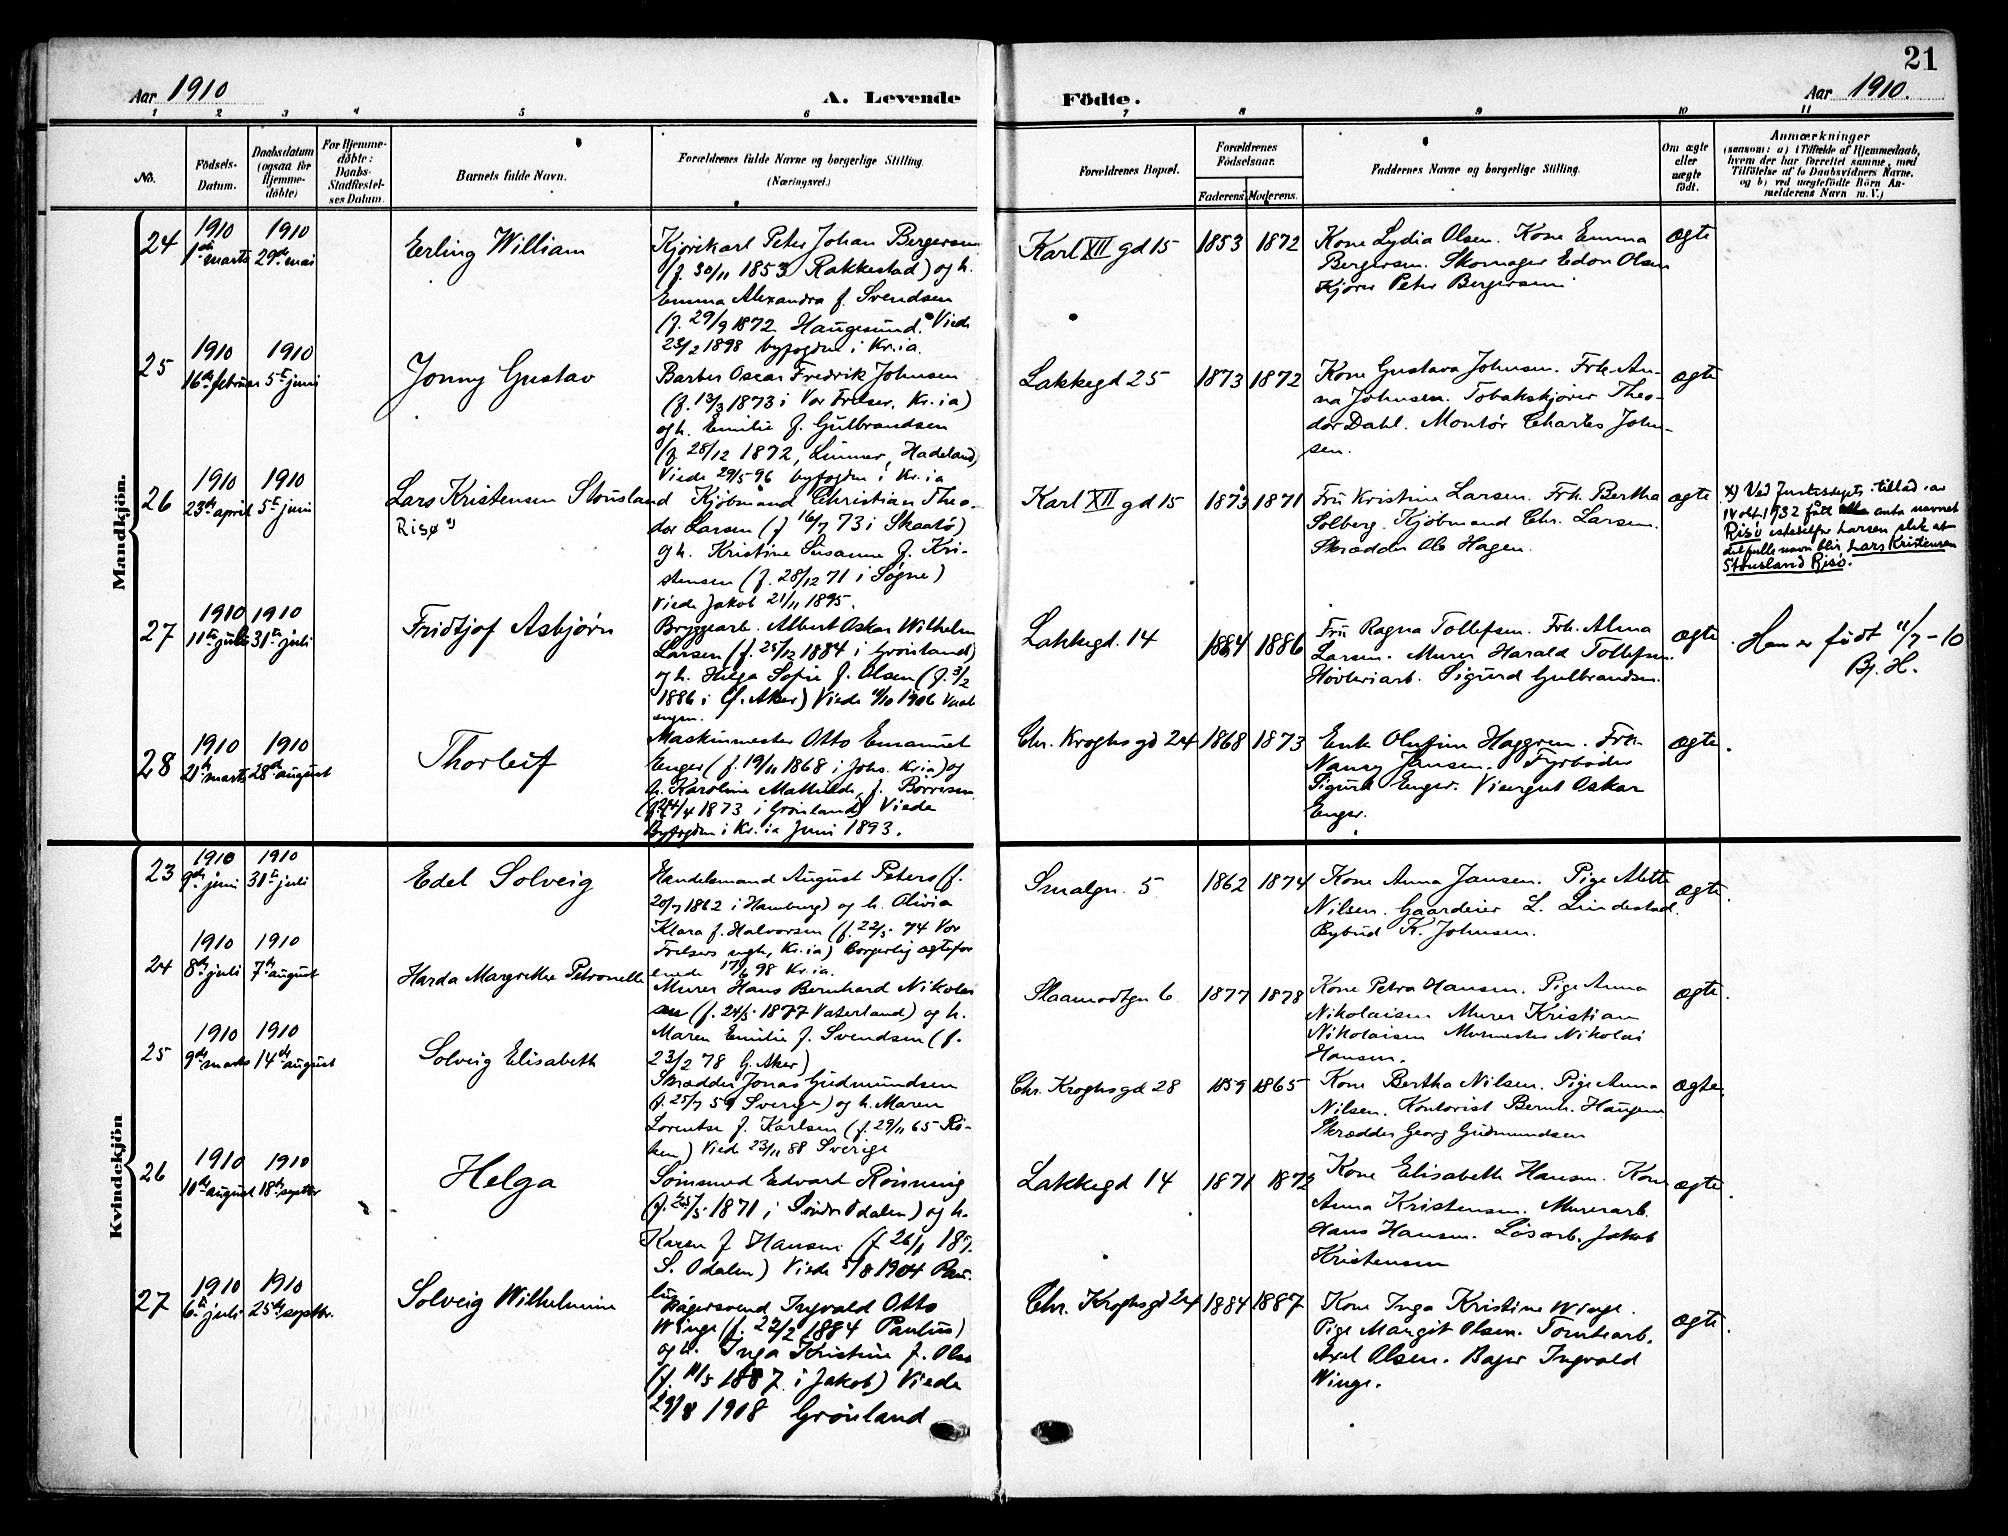 21
Aar 1910
A. Levende
Födte.
Aar 1910.
1 2 3 4 5 6 7 8 9 10 11
No.
Födsels-
Datum.
Daabsdatum
(ogsaa for
Hjemme-
döbte)
For Hjemme-
döbte:
Daabs-
Stadfæstel-
ses Datum.
Barnets fulde Navn.
Forældrenes fulde Navne og borgerlige Stilling.
(Næringsvei.)
Forældrenes Bopæl.
Forældrenes
Födselsaar.
Faderens. Moderens.
Faddernes Navne og borgerlige Stilling.
Om ægte
eller
uægte
födt.
Anmærkninger
(saasom: a) i Tilfælde af Hjemmedaab,
hvem der har forrettet samme, med
Tilföielse af to Daabsvidners Navne,
og b) ved uægtefödte Börn An-
melderens Navn m. V.)
Mandkjön.
24
1910
1ste marts
1910
29de mai
Erling William
Kjørekarl Peter Johan Bergersen
(f. 30/11 1853 Rakkestad) og h.
Emma Alexandra f. Svendsen
(f. 29/9 1872 Haugesund. Viede
23/2 1898 byfogden i Kr.ia.
Karl XII gd 15
1853 1872
Kone Lydia Olsen. Kone Emma
Bergersen. Skomager Edon Olsen
Kjører Peter Bergersen
ægte
25
1910
16de februar
1910
5te juni
Jonny Gustav
Barber Oscar Fredrik Johnsen
(f. 13/3 1873 i Vor Frelser, Kr.ia)
og h. Emilie f. Gulbrandsen
(f. 28/12 1872, Lunner, Hadeland)
Viede 29/5 96 byfogden i Kr.ia
Lakkegd 25
1873 1872
Kone Gustava Johnsen. Frk. An-
na Johnsen. Tobakskjører Theo-
dor Dahl. Montør Charles John-
sen.
ægte
26
1910
23de april
1910
5te juni
Lars Kristensen Stousland
Risø x)
Kjøbmand Christian Theo-
dor Larsen (f 16/7 73 i Skaatø)
og h. Kristine Susanne f. Kri-
stensen (f. 28/12 71 i Søgne)
Viede Jakob 21/11 1895.
Karl XII gd 15
1873 1871
Fru Kristine Larsen. Frk. Bertha
Solberg. Kjøbmand Chr. Larsen.
Skrædder Ole Hagen.
ægte
x) Ved Justisdepts. tillad. av
14 okt. 1932 fått anta navnet
Risø istedetfor Larsen slik at
det fulle navn blir, Lars Kristensen
Stousland Risø.
27
1910
11te juli
1910
31te juli
Fridtjof Asbjørn
Bryggearb. Albert Oskar Wilhelm
Larsen (f. 25/12 1884 i Grønland)
og h. Helga Sofie f. Olsen (f. 3/2
1886 i Ø. Aker) Viede 11/10 1906 Vaal
engen.
Lakkegd. 14
1884 1886
Fru Ragna Tollefsen. Frk. Alma
Larsen. Murer Harald Tollefsen.
Høvleriarb. Sigurd Gulbrandsen.
ægte
Han er født 11/7-10
Bj. H.
28
1910
21de marts
1910
28de august
Thorleif
Maskinmester Otto Emanuel
Enger (f. 19/11 1868 i Johs. Kr.ia) og
h. Karoline Mathilde, f. Børresen
1873 i Grønland) Viede
Byfogden i Kr.ia Juni 1893.
Chr. Kroghsgd 24
1868 1873
Enke Olufine Haggren. Frk.
Nancy Jensen. Fyrbøder
Sigurd Enger. Visergut Oskar
Enger.
ægte.
Kvindekjön
23
1910
9de juni
1910
31te juli
Edel Solveig
Handelsmand August Peters (f.
20/7 1862 i Hamburg) og h. Olivia
Klara f. Halvorsen (f. 22/5 74 Vor
Frelsers mgh, Kr.ia) Borgerlig ægtefor
enede 17/6 98 Kr.ia.
Smalgn. 5
1862 1874
Kone Anna Jansen. Pige Alette
Nilsen. Gaardeier L. Lindestad.
Bybud K. Johnsen.
ægte.
24
1910
8de juli
1910
7de august
Harda Margrethe Petronelle
Murer Hans Bernhard Nikolai
sen (f. 24/5 1877 Vaterland) og h.
Maren Emilie f. Svendsen (f.
23/2 78 G. Aker)
Slaamodtgn 6.
1877 1878
Kone Petra Hansen. Pige Anna
Nikolaisen Murer Kristian
Nikolaisen Murmester Nikolai
Hansen.
ægte.
25
1910
9de marts
1910
14de august
Solveig Elisabeth
Skrædder Jonas Gudmundsen
(f. 25/7 59 Sverige) og h. Maren
Lorentse f. Karlsen (f. 29/11 65 Rö-
ken) Vied 23/11 88 Sverige
Chr. Kroghsgd 28
1859 1865
Kone Bertha Nilsen. Pige Anna
Nilsen. Kontorist Bernh. Haugene
Skrædder Georg Gudmundsen
ægte.
26
1910
10de august
1910
18de septbr
Helga
Edvard Rønning
1871 i Søndr Odalen) og h.
Karen f Hansen (f 26/1 187.
S. Odalen) Viede 5/8 1904 Pau-
lus
Lakkegd 14
1871 1872
Kone Elisabeth Hansen. Kone
Anna Kristensen. Murerarb.
Hans Hansen. Løsarb. Jakob
Kristensen
ægte.
27
1910
6te juli
1910
25de septbr.
Solveig Wilhelmine
Bagersvend Ingvald Otto
Winge (f. 22/2 1884 Paulus)
og h. Inga Kristine f. Olse
(f. 11/5 1887 i Jakob) Viede
29/8 1908 Grønland
Chr. Kroghsgd 24
1884 1887
Kone Inga Kristine Winge.
Pige Margit Olsen. Tomtearb.
Axel Olsen. Bager Ingvald
Winge.
ægte.